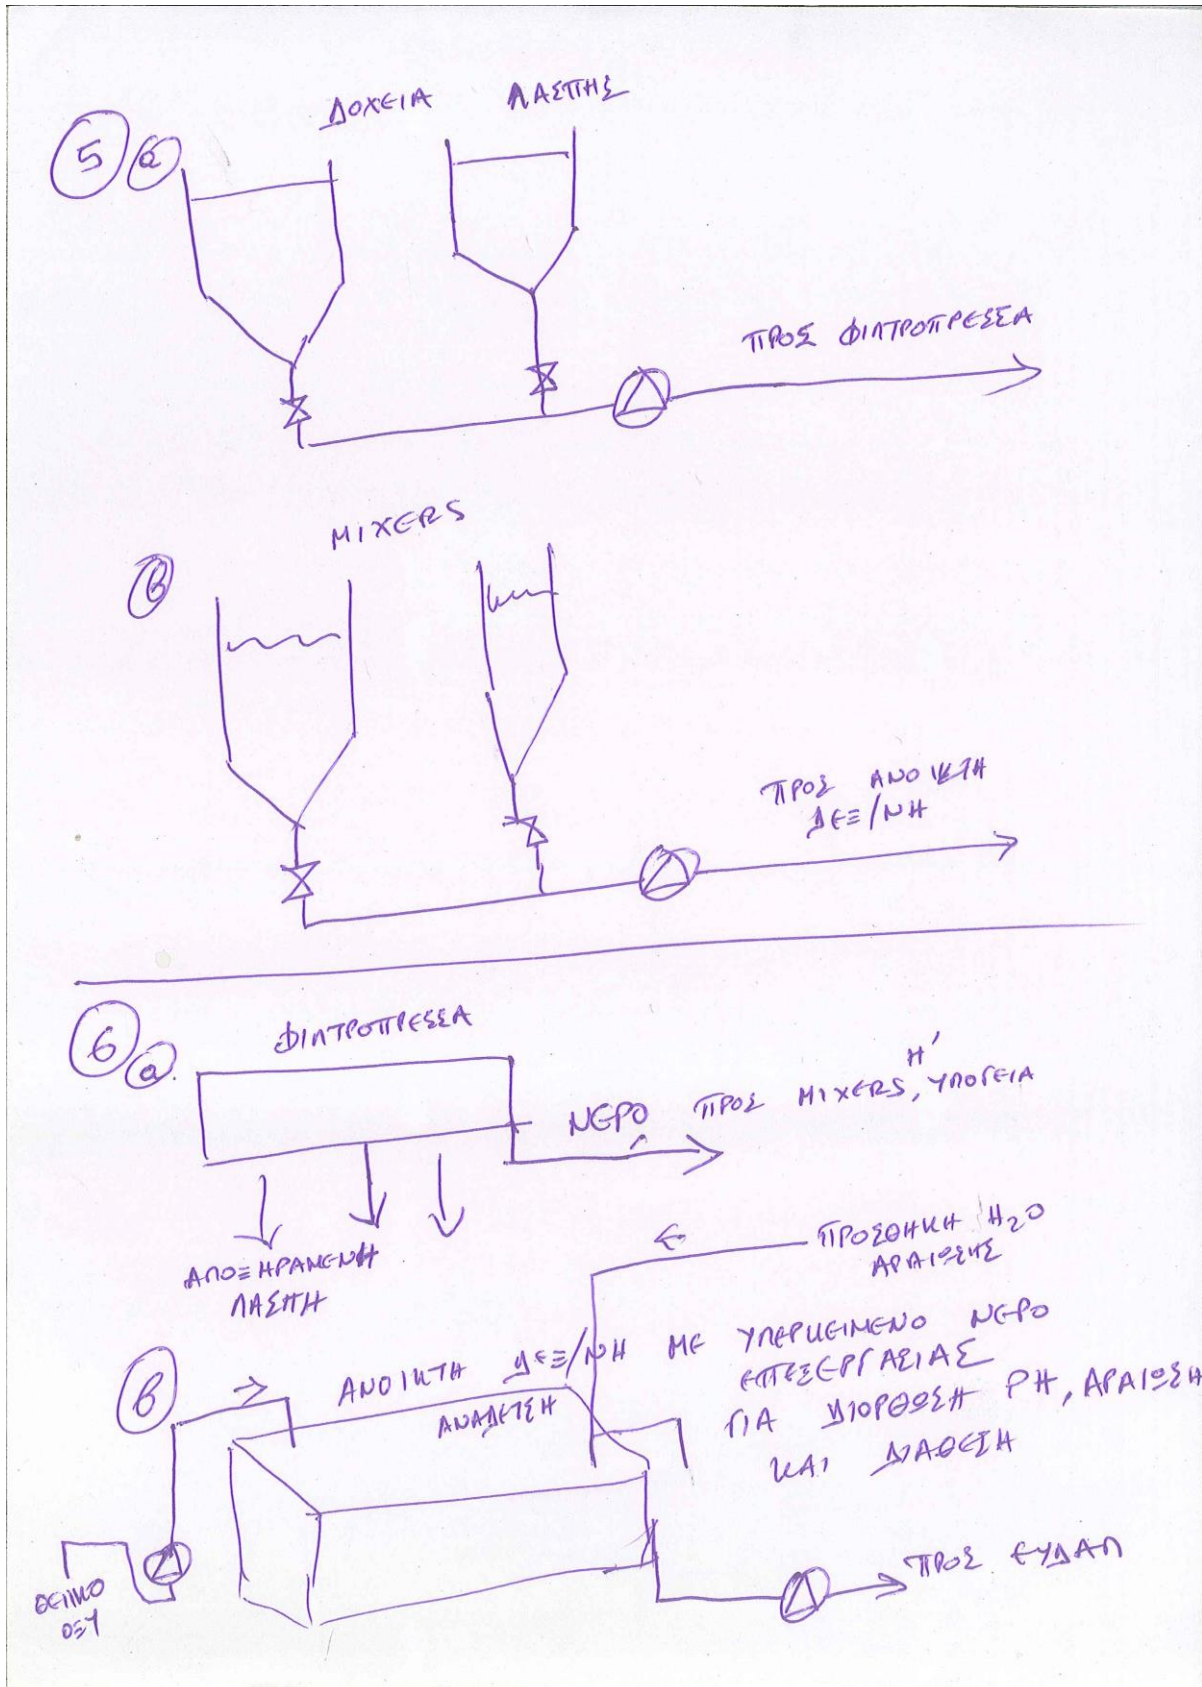 5 α
ΔΟΧΕΙΑ ΛΑΣΠΗΣ
ΠΡΟΣ ΦΙΛΤΡΟΠΡΕΣΣΑ
β
MIXERS
ΠΡΟΣ ΑΝΟΙΚΤΗ
ΔΕΞ/ΝΗ
6 α
ΦΙΛΤΡΟΠΡΕΣΣΑ
ΝΕΡΟ ΠΡΟΣ MIXERS, Η' ΥΠΟΓΕΙΑ
ΑΠΟΞΗΡΑΜΕΝΗ
ΛΑΣΠΗ
ΠΡΟΣΘΗΚΗ H2O
ΑΡΑΙΩΣΗΣ
β
ΑΝΟΙΚΤΗ ΔΕΞ/ΝΗ ΜΕ ΥΠΕΡΚΕΙΜΕΝΟ ΝΕΡΟ
ΕΠΕΞΕΡΓΑΣΙΑΣ
ΓΙΑ ΔΙΟΡΘΩΣΗ PH, ΑΡΑΙΩΣΗ
ΚΑΙ ΔΙΑΘΕΣΗ
ΘΕΙΙΚΟ
ΟΞΥ
ΠΡΟΣ ΕΥΔΑΠ